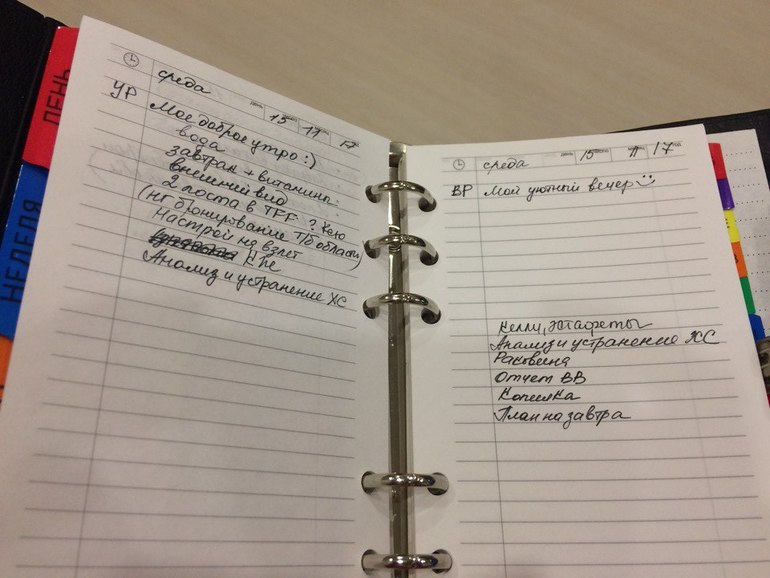 ДЕНЬ
НЕДЕЛЯ
среда 15 11 17
УР Мое доброе утро :)
вода
завтрак + витамины
внешний вид
2 поста в TFF ?
(не бронирование Т/б области)
Настрой на взлет
Анализ и устранение ХС
среда 15 11 17
ВР Мой уютный вечер
Келли, эстафеты
Анализ и устранение ХС
Раковина
Отчет ВВ
Копилка
План на завтра